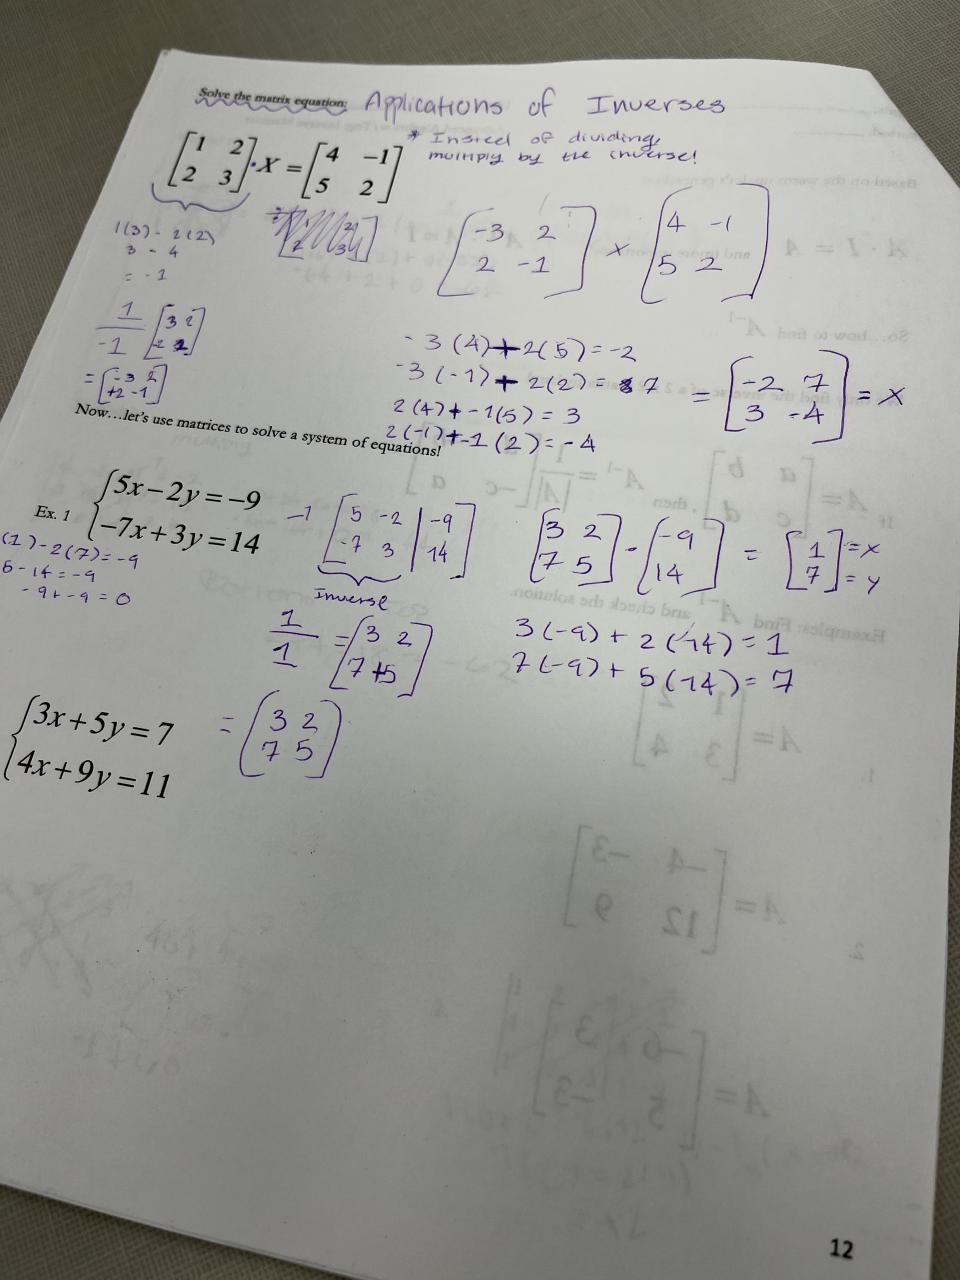 Solve the matrix equation: Applications of Inverses
* Insteel of dividing
multiply by the inverse!
[1 2
2 3] · X = [4 −1
5 2]
1(3) - 2(2)
3 - 4
= -1
[-3 2
2 -1] × [4 -1
5 2]
1/-1 [3 2
-2 1]
= [-3 2
+2 -1]
-3(4) + 2(5) = -2
-3(-1) + 2(2) = 7
2(4) + -1(5) = 3
2(-1) + -1(2) = -4
= [-2 7
3 -4] = X
Now…let's use matrices to solve a system of equations!
Ex. 1
5x − 2y = −9
−7x + 3y = 14
(1) - 2(7) = -9
5 - 14 = -9
-9 + -9 = 0
-1 [5 -2 | -9
-7 3 | 14]
Inverse
1/1 = [3 2
7 +5]
= [3 2
7 5]
[3 2
7 5] · [-9
14] = [1
7] = x
= y
3(-9) + 2(14) = 1
7(-9) + 5(14) = 7
3x + 5y = 7
4x + 9y = 11
12